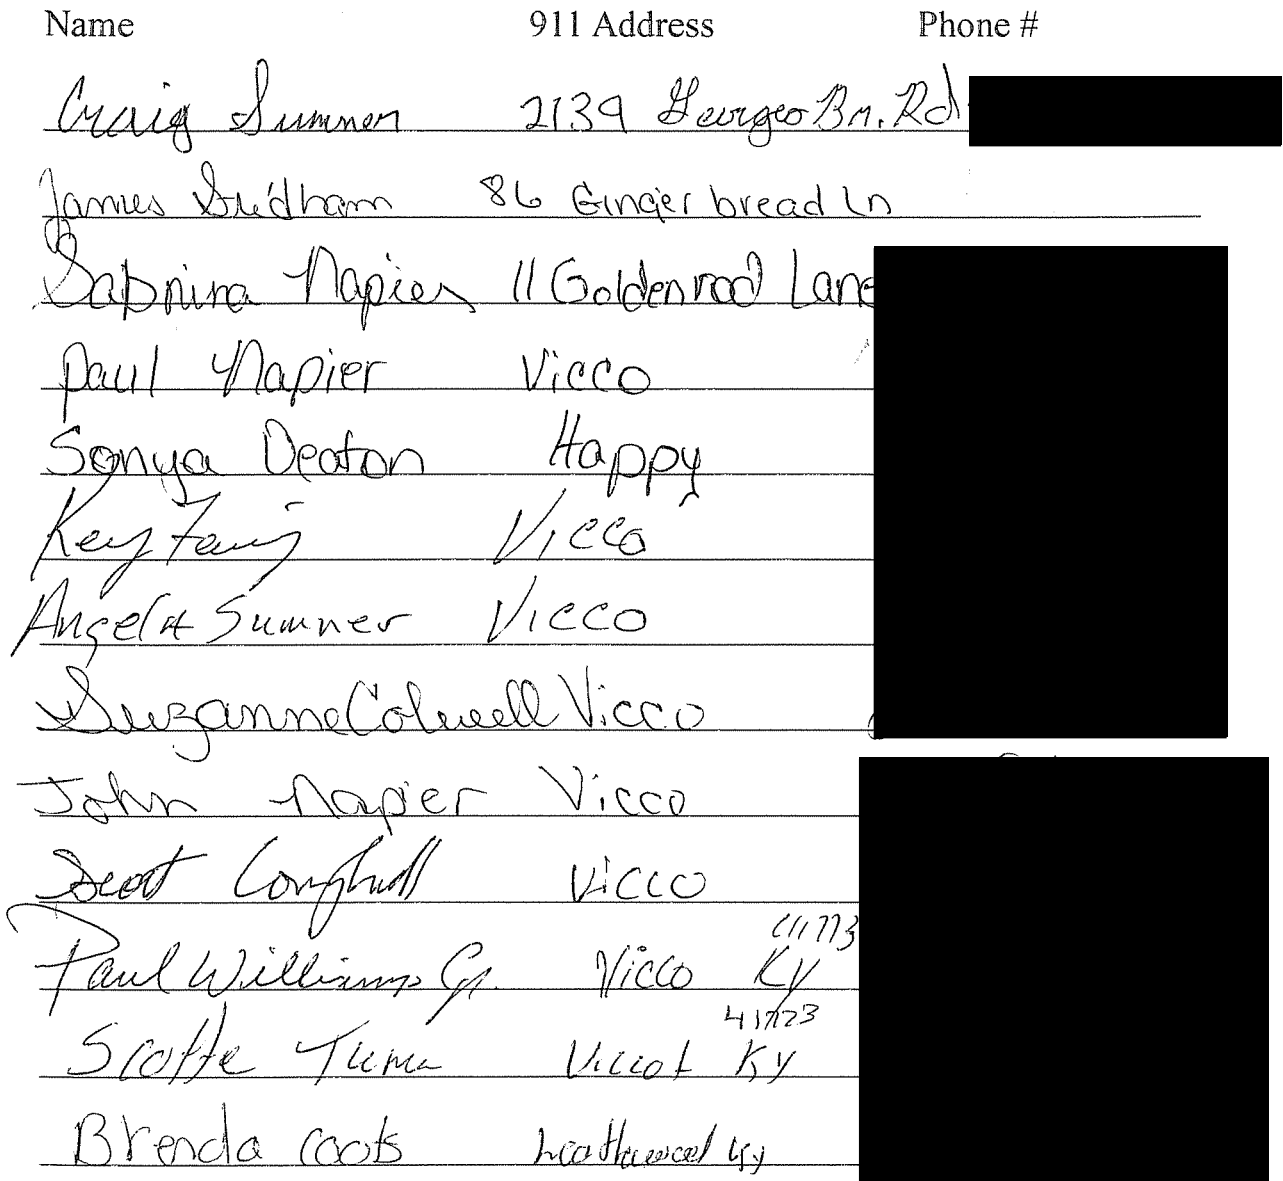 Name 911 Address Phone #
Craig Sumner 2139 Georges Bn. Rd
James Sudham 86 Gingerbread Ln
Sabrina Napier 11 Goldenrod Lane
Paul Napier Vicco
Sonya Deaton Happy
Vicco
Angela Sumner Vicco
Suzanne Colwell Vicco
John Napier Vicco
Scott Vicco
41773
Paul Williams Jr. Vicco Ky
41773
Scotte Vicco Ky
Brenda Coots Leatherwood Ky